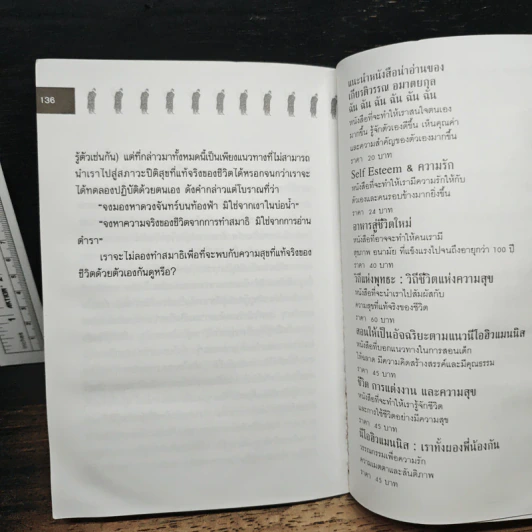 136
รู้ตัวเช่นกัน) แต่ที่กล่าวมาทั้งหมดนี้เป็นเพียงแนวทางที่ไม่สามารถ
นำเราไปสู่สภาวะปิติสุขที่แท้จริงของชีวิตได้หรอกจนกว่าเราจะ
ได้ทดลองปฏิบัติด้วยตนเอง ดังคำกล่าวแต่โบราณที่ว่า
"จงมองหาดวงจันทร์บนท้องฟ้า มิใช่จากเงาในบ่อน้ำ"
"จงหาความจริงของชีวิตจากการทำสมาธิ มิใช่จากการอ่าน
ตำรา"
เราจะไม่ลองทำสมาธิเพื่อที่จะพบกับความสุขที่แท้จริงของ
ชีวิตด้วยตัวเองกันดูหรือ?
แนะนำหนังสือน่าอ่านของ
เกียรติวรรณ อมาตยกุล
ฉัน ฉัน ฉัน ฉัน ฉัน ฉัน
หนังสือที่จะทำให้เราสนใจตนเอง
มากขึ้น รู้จักตัวเองดีขึ้น เห็นคุณค่า
และความสำคัญของตัวเองมากขึ้น
ราคา 20 บาท
Self Esteem & ความรัก
หนังสือที่จะทำให้เรามีความรักให้กับ
ตัวเองและคนรอบข้างมากยิ่งขึ้น
ราคา 24 บาท
อาหารสู่ชีวิตใหม่
หนังสือที่อาจจะทำให้คนเรามี
สุขภาพ อนามัย ที่แข็งแรงไปจนถึงอายุกว่า 100 ปี
ราคา 40 บาท
วิถีแห่งพุทธะ : วิถีชีวิตแห่งความสุข
หนังสือที่จะนำเราไปสัมผัสกับ
ความสุขที่แท้จริงของชีวิต
ราคา 60 บาท
สอนให้เป็นอัจฉริยะตามแนวนีโอฮิวแมนนิส
หนังสือที่บอกแนวทางในการสอนเด็ก
ให้ฉลาด มีความคิดสร้างสรรค์และมีคุณธรรม
ราคา 45 บาท
ชีวิต การแต่งงาน และความสุข
หนังสือที่จะทำให้เรารู้จักชีวิต
และการใช้ชีวิตอย่างมีความสุข
ราคา 45 บาท
นีโอฮิวแมนนิส : เราทั้งผองพี่น้องกัน
วรรณกรรมเพื่อความรัก
ความเมตตาและสันติภาพ
ราคา 45 บาท